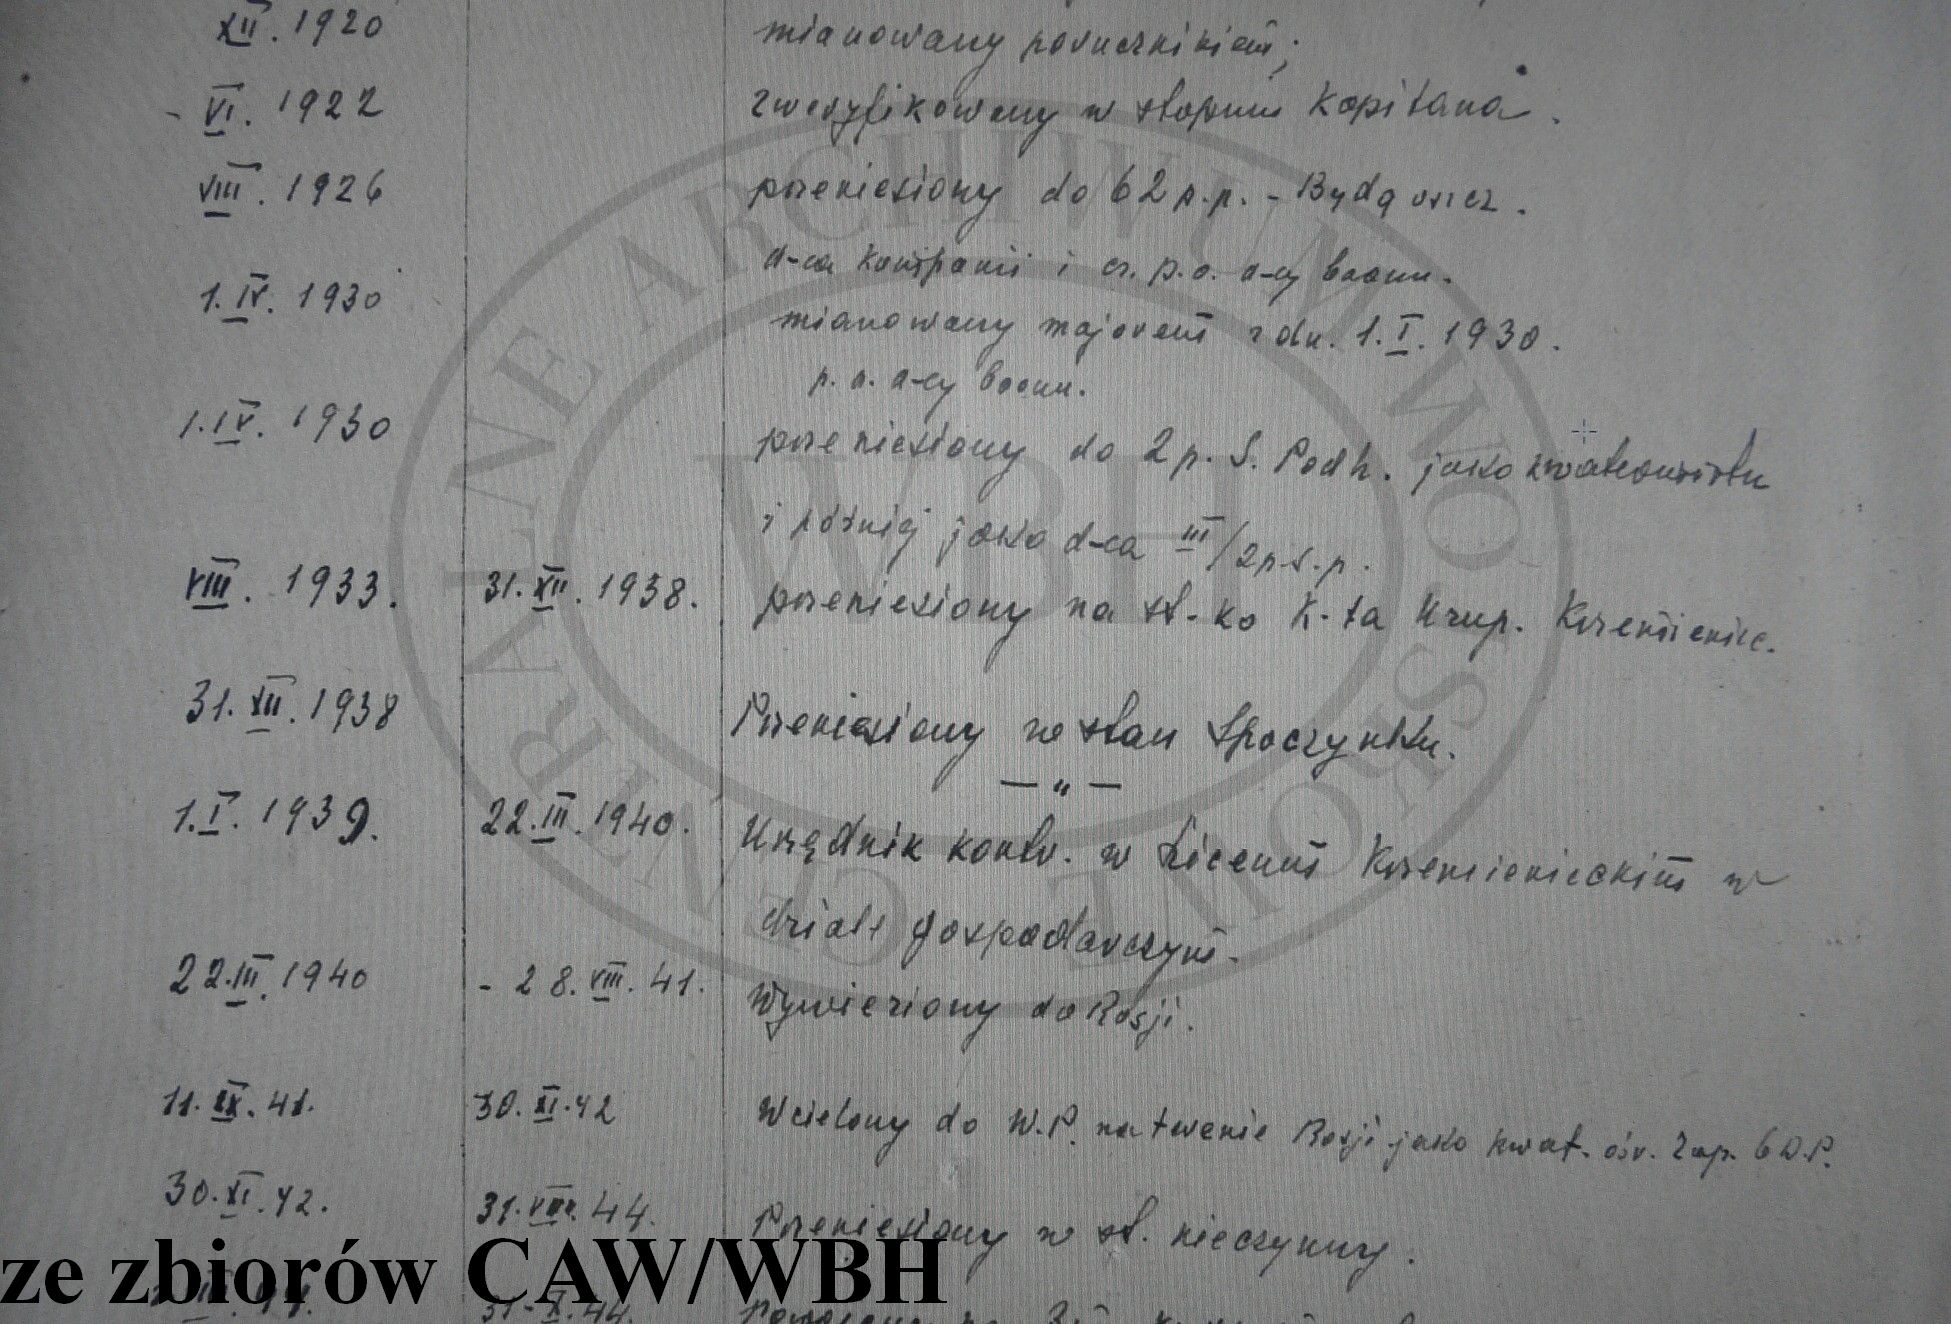 XII. 1920 mianowany porucznikiem;
- VI. 1922 zweryfikowany w stopniu Kapitana.
VIII. 1926 przeniesiony do 62 p.p. - Bydgoszcz.
d-ca kompanii i cz. p.o. d-cy baonu.
1. IV. 1930 mianowany majorem z dn. 1. I. 1930.
p. o. d-cy baonu.
1. IV. 1930 przeniesiony do 2 p. S. Podh. jako kwatermistrz
i później jako d-ca III/2 p.s.p.
VIII. 1933. 31. XII. 1938. przeniesiony na st-ko K-ta Uzup. Krzemieniec.
31. XII. 1938 Przeniesiony w stan Spoczynku.
— „ —
1. I. 1939. 22. III. 1940. Urzędnik kontr. w Liceum Krzemienieckim w
dziale gospodarczym.
22. III. 1940 - 28. VIII. 41. Wywieziony do Rosji.
11. IX. 41. 30. XI. 42 Wcielony do W.P. na terenie Rosji jako kwat. ośr. Zap. 6 D.P.
30. XI. 42. 31. VIII. 44. Przeniesiony w st. nieczynny.
31. X. 44.
ze zbiorów CAW/WBH
CENTRALNE ARCHIWUM WOJSKOWE
WBH